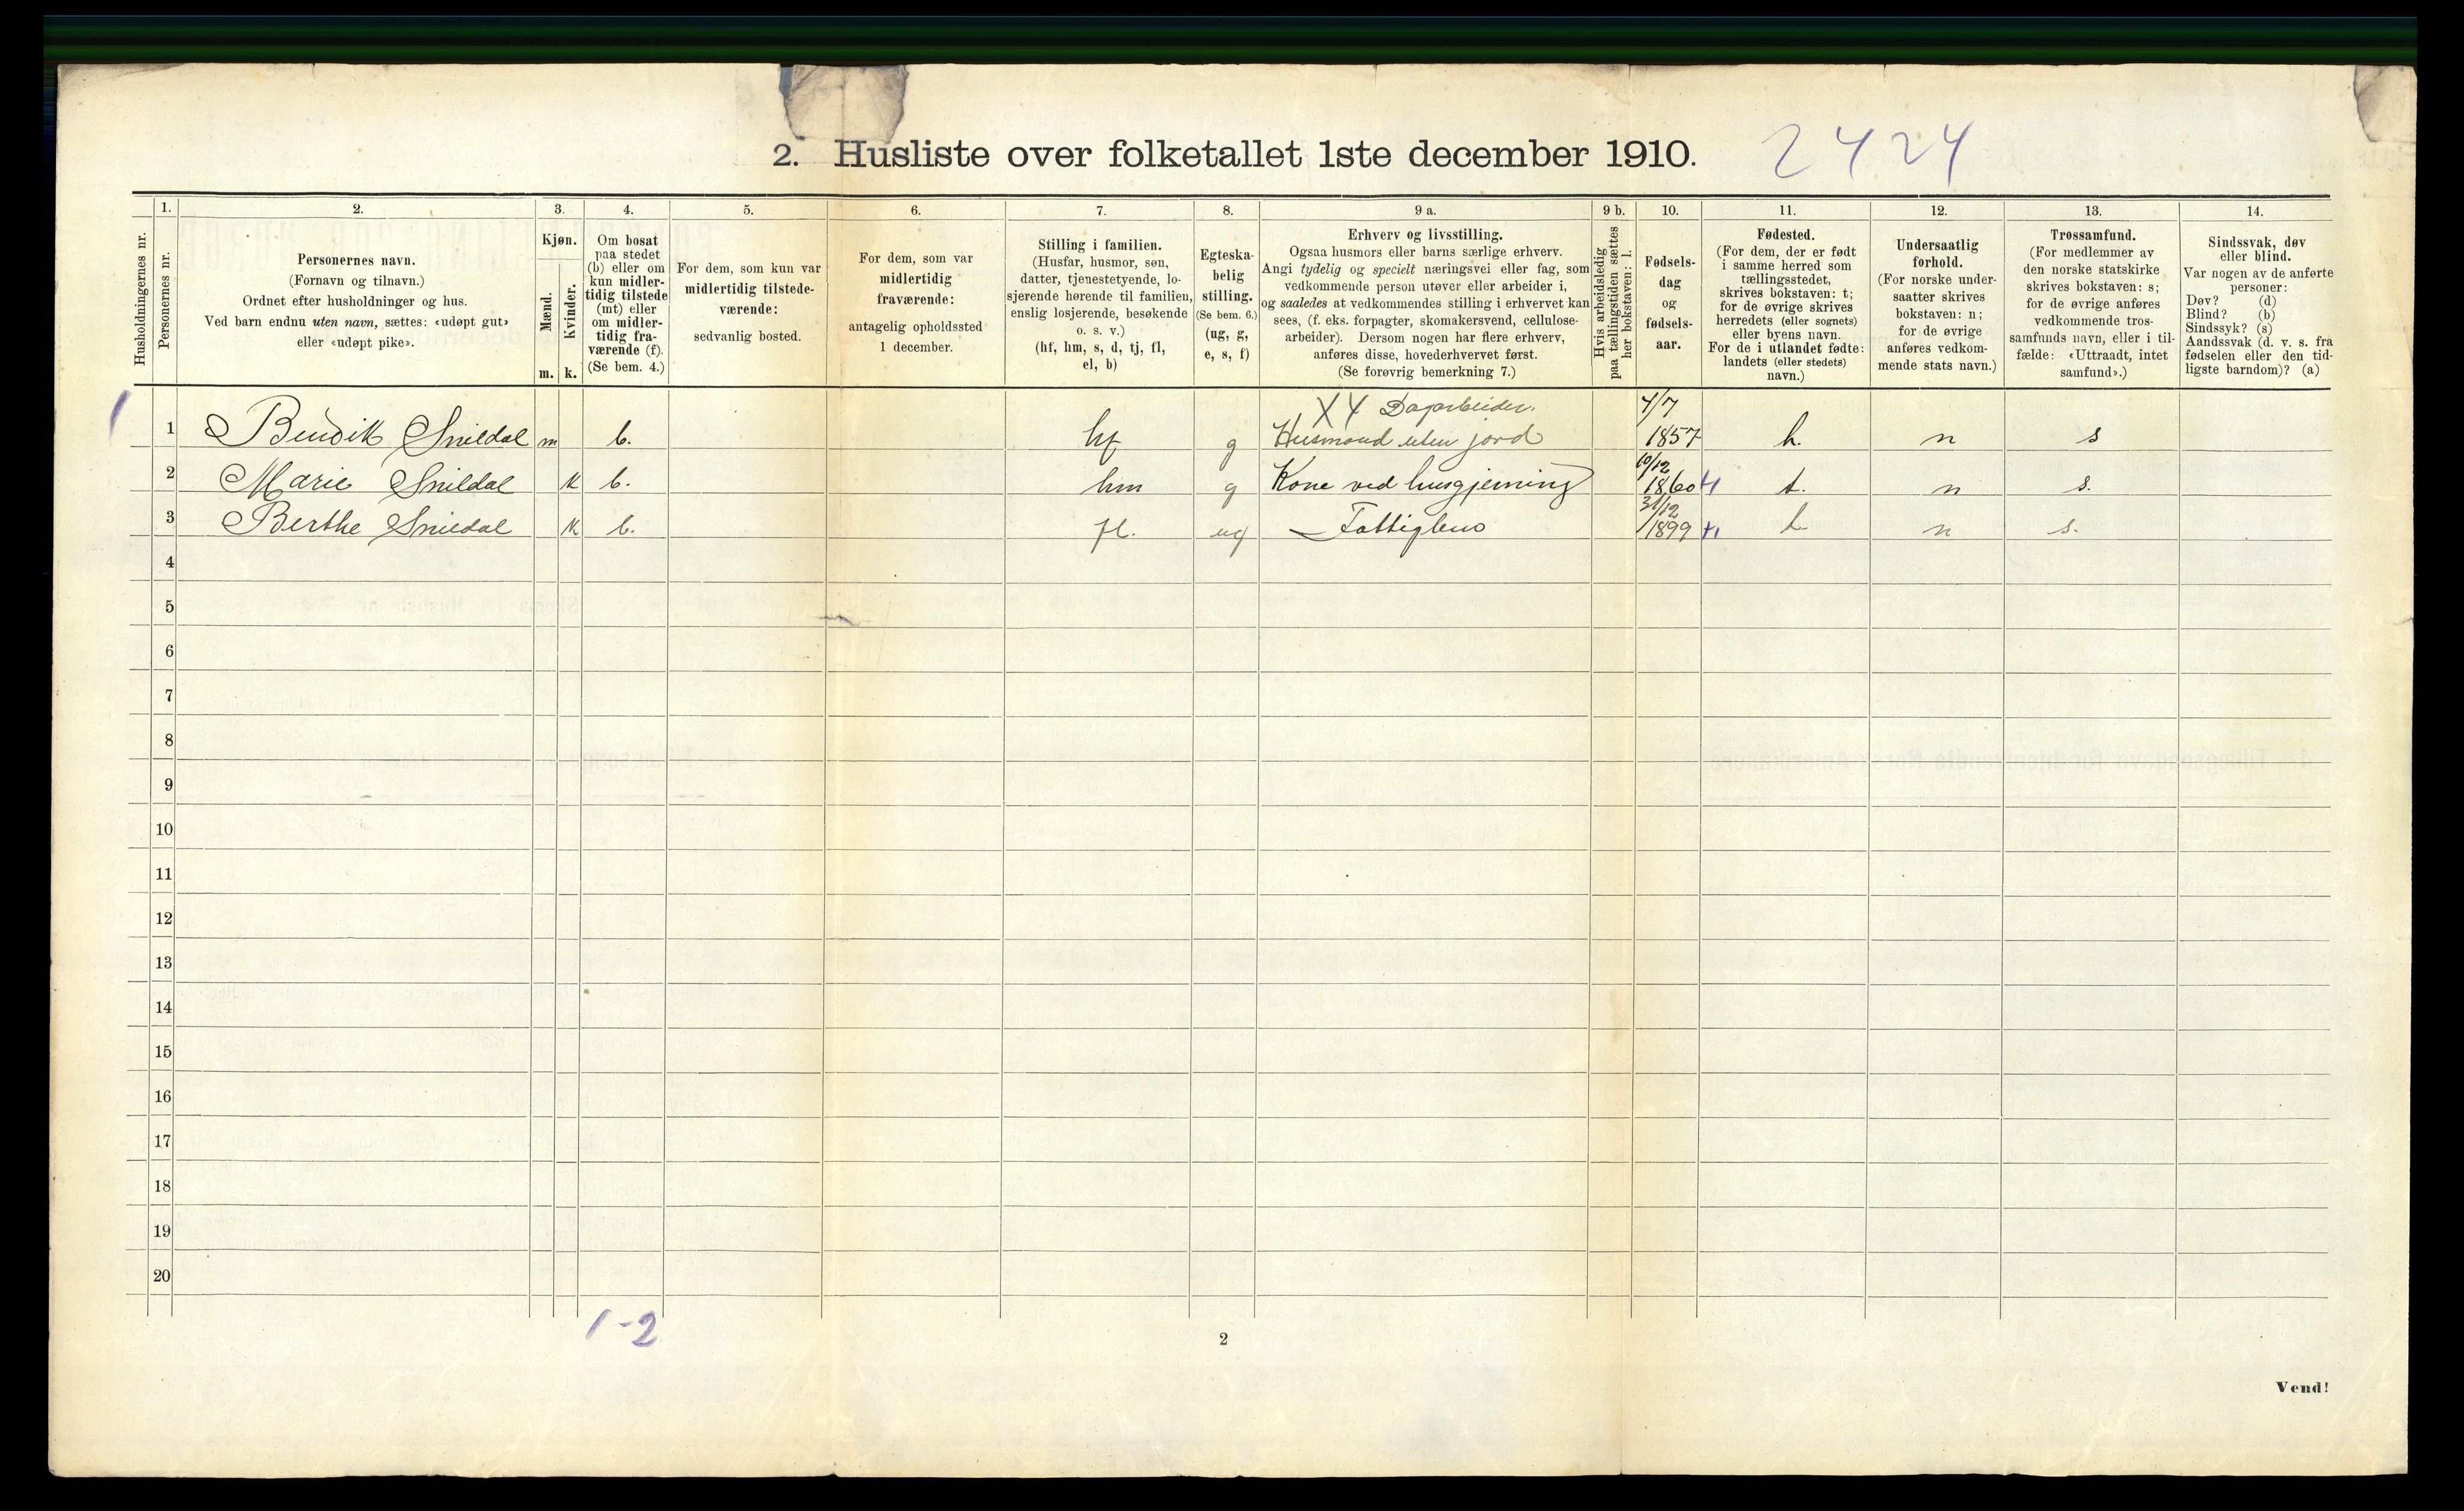 2. Husliste over folketallet 1ste december 1910. 2424
Husholdningernes nr.
1.
Personernes nr.
2.
Personernes navn.
(Fornavn og tilnavn.)
Ordnet efter husholdninger og hus.
Ved barn endnu uten navn, sættes: «udøpt gut»
eller «udøpt pike».
3.
Kjøn.
Mænd.
Kvinder.
m. k.
4.
Om bosat
paa stedet
(b) eller om
kun midler-
tidig tilstede
(mt) eller
om midler-
tidig fra-
værende (f).
(Se bem. 4.)
5.
For dem, som kun var
midlertidig tilstede-
værende:
sedvanlig bosted.
6.
For dem, som var
midlertidig
fraværende:
antagelig opholdssted
1 december.
7.
Stilling i familien.
(Husfar, husmor, søn,
datter, tjenestetyende, lo-
sjerende hørende til familien,
enslig losjerende, besøkende
o. s. v.)
(hf, hm, s, d, tj, fl,
el, b)
8.
Egteska-
belig
stilling.
(Se bem. 6.)
(ug, g,
e, s, f)
9 a.
Erhverv og livsstilling.
Ogsaa husmors eller barns særlige erhverv.
Angi tydelig og specielt næringsvei eller fag, som
vedkommende person utøver eller arbeider i,
og saaledes at vedkommendes stilling i erhvervet kan
sees, (f. eks. forpagter, skomakersvend, cellulose-
arbeider). Dersom nogen har flere erhverv,
anføres disse, hovederhvervet først.
(Se forøvrig bemerkning 7.)
9 b.
Hvis arbeidsledig
paa tællingstiden sættes
her bokstaven: l.
10.
Fødsels-
dag
og
fødsels-
aar.
11.
Fødested.
(For dem, der er født
i samme herred som
tællingsstedet,
skrives bokstaven: t;
for de øvrige skrives
herredets (eller sognets)
eller byens navn.
For de i utlandet fødte:
landets (eller stedets)
navn.)
12.
Undersaatlig
forhold.
(For norske under-
saatter skrives
bokstaven: n;
for de øvrige
anføres vedkom-
mende stats navn.)
13.
Trossamfund.
(For medlemmer av
den norske statskirke
skrives bokstaven: s;
for de øvrige anføres
vedkommende tros-
samfunds navn, eller i til-
fælde: «Uttraadt, intet
samfund».)
14.
Sindssvak, døv
eller blind.
Var nogen av de anførte
personer:
Døv? (d)
Blind? (b)
Sindssyk? (s)
Aandssvak (d. v. s. fra
fødselen eller den tid-
ligste barndom)? (a)
X4 Dagarbeider. 4/7
1 1 Bendik Snildal m b. hf g Husmand uten jord 1857 t. n s
10/12
2 Marie Snildal k b. hm g Kone ved husgjerning 1860 t. n s.
31/12
3 Berthe Snildal k b. fl. ug Fattiglens 1899 t n s.
4
5
6
7
8
9
10
11
12
13
14
15
16
17
18
19
20
1-2
2
Vend!